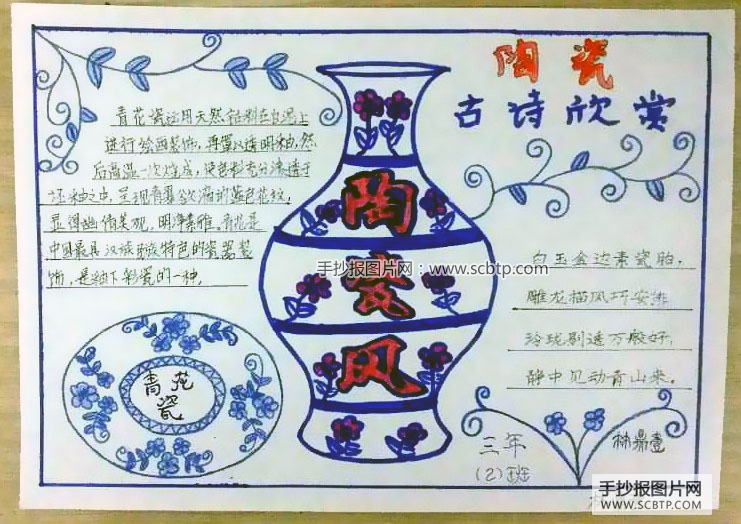 陶瓷
古诗欣赏
青花瓷运用天然钴料在白泥上
进行绘画装饰，再罩以透明釉，然
后高温一次烧成，使色彩充分渗透于
坯釉之中，呈现青翠欲滴的蓝色花纹，
显得幽倩美观，明净素雅。青花是
中国最具汉族民族特色的瓷器装
饰，是釉下彩瓷的一种，
陶
瓷
风
手抄报图片网：www.scbtp.com
白玉金边素瓷胎，
雕龙描凤巧安排
玲珑剔透万般好，
静中见动青山来。
青花
瓷
三年
（2）班
林鼎壹
手抄报图片网
WWW.SCBTP.COM